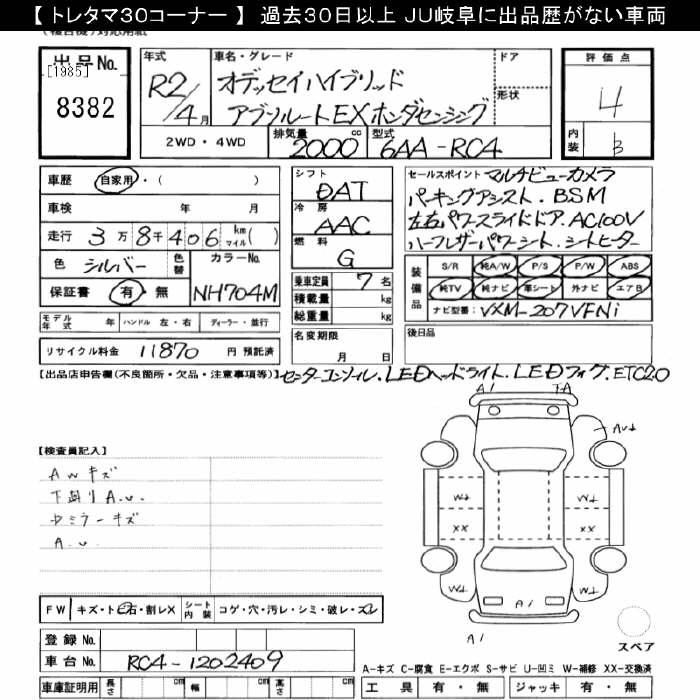 【 トレタマ30コーナー 】 過去30日以上 JU岐阜に出品歴がない車両
出品No.
[1985]
8382
年式
R2/4月
車名・グレード
オデッセイハイブリッド
アブソルートEXホンダセンシング
ドア
形状
評価点
4
内装
B
2WD ・ 4WD
排気量 2000 cc
型式 6AA-RC4
車歴 自家用・( )
車検 年 月
走行 3万8千406 km マイル( )
色 シルバー 色替
カラーNo. NH704M
保証書 有・無
シフト
DAT
冷房
AAC
燃料
G
乗車定員 7名
積載量 kg
総重量 kg
セールスポイント マルチビューカメラ
パーキングアシスト.BSM
左右パワースライドドア.AC100V
ハーフレザーパワーシート.シートヒーター
装備品
S/R 純A/W P/S P/W ABS
純TV 純ナビ 革シート 外ナビ エアB
ナビ型番: VXM-207VFNi
モデル年式 年 ハンドル 左・右 ディーラー・並行
リサイクル料金 11870 円 預託済
名変期限
月 日
後日品
【出品店申告欄(不良箇所・欠品・注意事項等)】センターコンソイレ.LEDヘッドライト.LEDフォグ.ETC2.0
【検査員記入】
AWキズ
下廻りA.u.
ミラーキズ
A.u.
A1
W1 W1
XX XX
W1 W1
A1
A1
FW キズ・ト石・割レX
シート内装 コゲ・穴・汚レ・シミ・破レ・スレ
登録No.
車台No. RC4-1202409
スペア
A-キズ C-腐食 E-エクボ S-サビ U-凹ミ W-補修 XX-交換済
車庫証明用 長さ cm 幅 cm 高さ cm
工具 有・無 ジャッキ 有・無